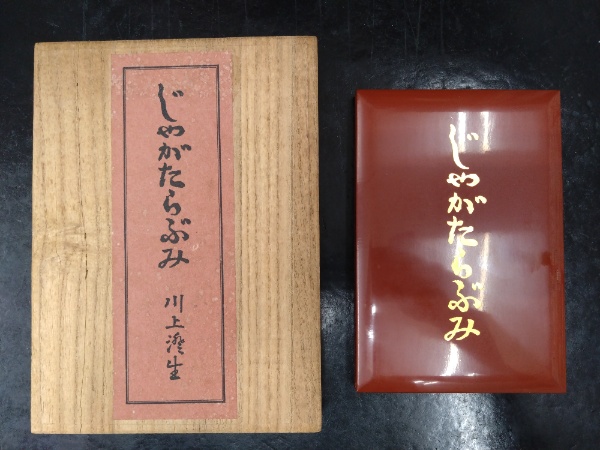 じゃがたらぶみ
川上澄生
じゃがたらぶみ